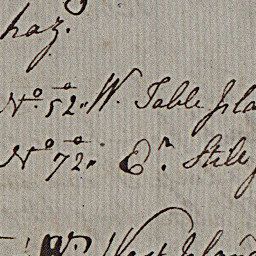 haz.
No. 52. W. Table Isla
No. 72. Er. Stile
W. West Islan